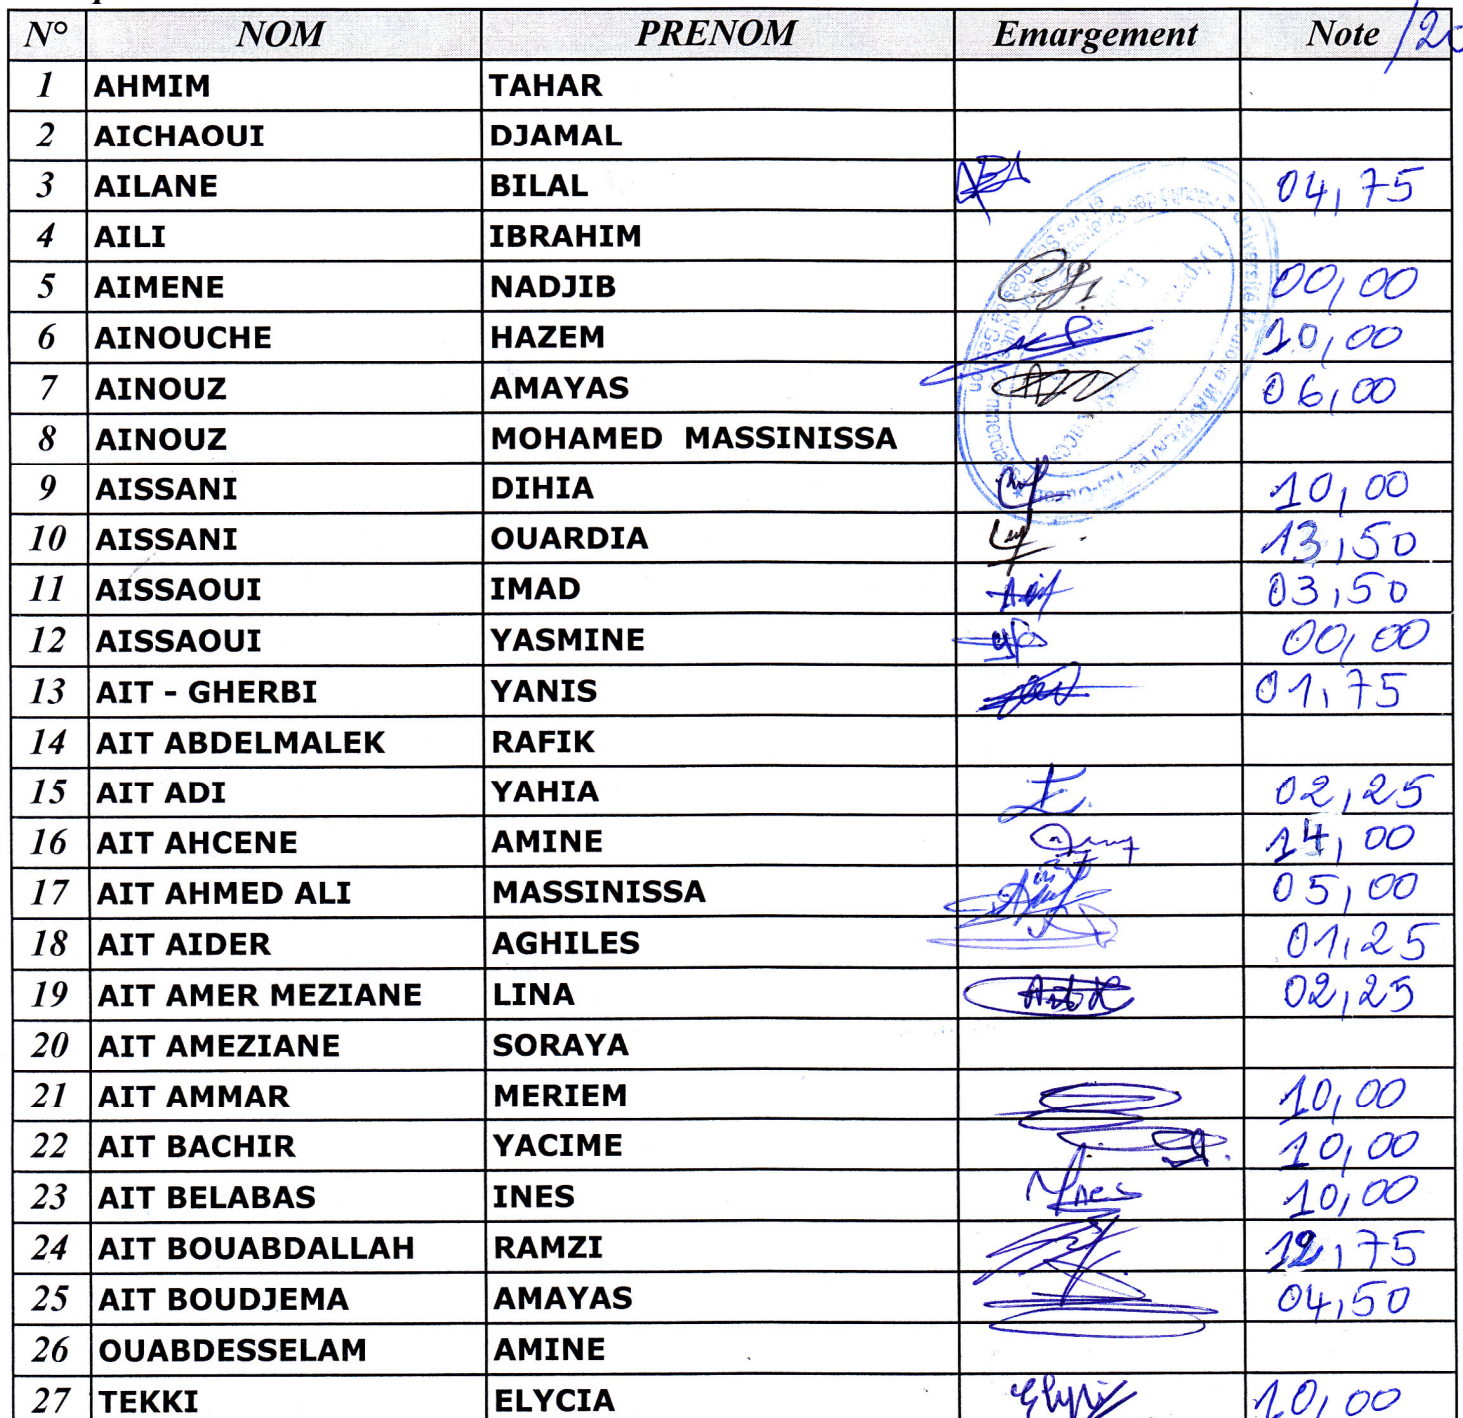 N° NOM PRENOM Emargement Note /20
1 AHMIM TAHAR
2 AICHAOUI DJAMAL
3 AILANE BILAL 04,75
4 AILI IBRAHIM
5 AIMENE NADJIB 00,00
6 AINOUCHE HAZEM 10,00
7 AINOUZ AMAYAS 06,00
8 AINOUZ MOHAMED MASSINISSA
9 AISSANI DIHIA 10,00
10 AISSANI OUARDIA 13,50
11 AISSAOUI IMAD 03,50
12 AISSAOUI YASMINE 00,00
13 AIT - GHERBI YANIS 01,75
14 AIT ABDELMALEK RAFIK
15 AIT ADI YAHIA 02,25
16 AIT AHCENE AMINE 14,00
17 AIT AHMED ALI MASSINISSA 05,00
18 AIT AIDER AGHILES 01,25
19 AIT AMER MEZIANE LINA 02,25
20 AIT AMEZIANE SORAYA
21 AIT AMMAR MERIEM 10,00
22 AIT BACHIR YACIME 10,00
23 AIT BELABAS INES Ines 10,00
24 AIT BOUABDALLAH RAMZI 12,75
25 AIT BOUDJEMA AMAYAS 04,50
26 OUABDESSELAM AMINE
27 TEKKI ELYCIA 10,00